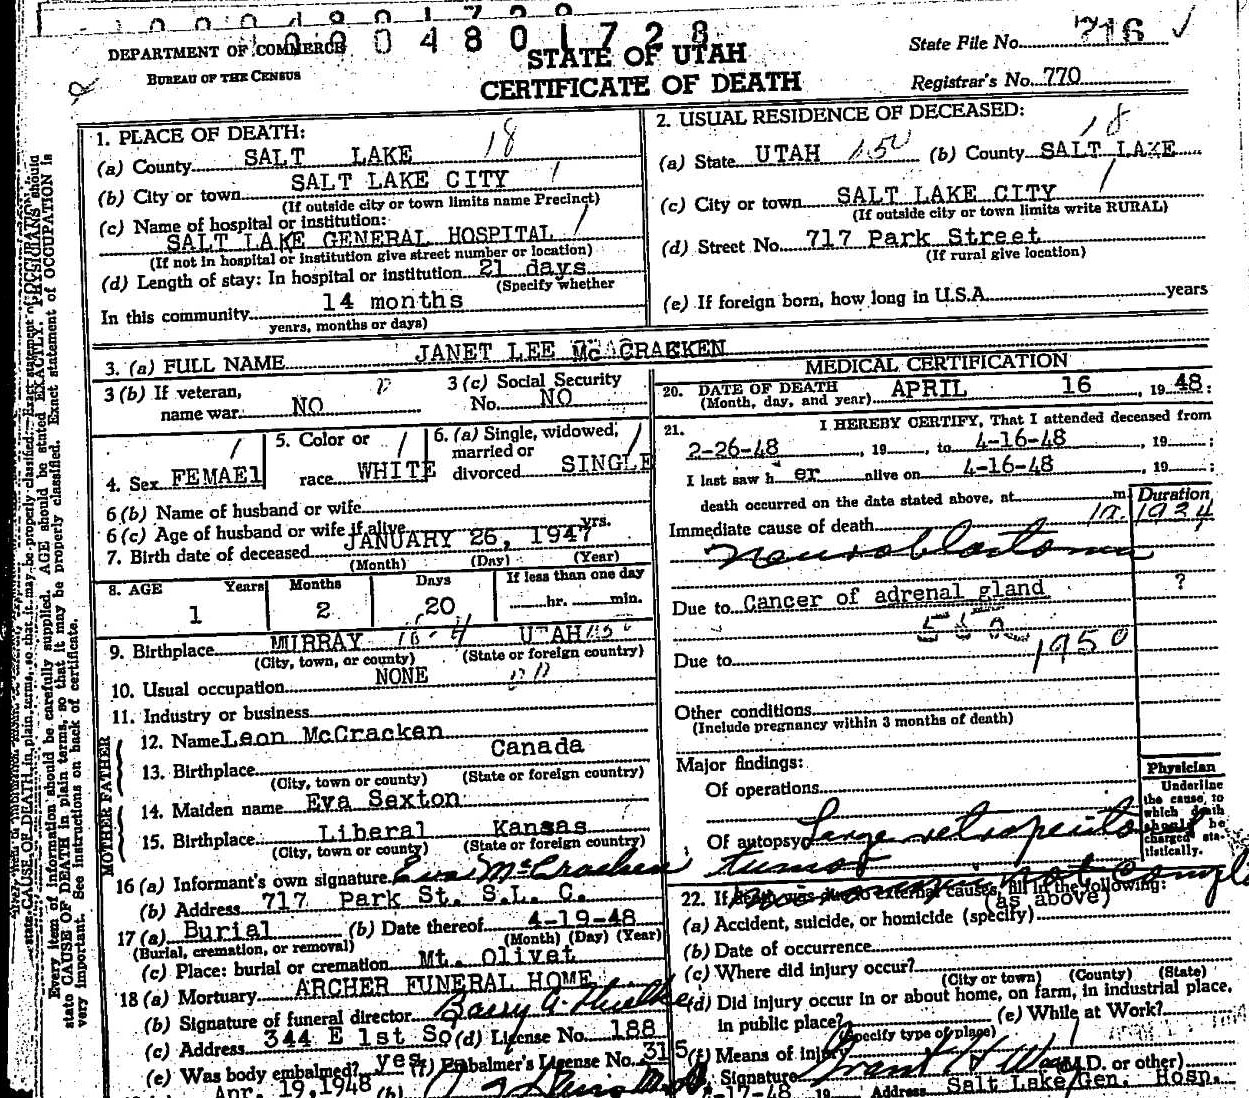 0004801728
DEPARTMENT OF COMMERCE
BUREAU OF THE CENSUS
STATE OF UTAH
CERTIFICATE OF DEATH
State File No. 716
Registrar's No. 770
1. PLACE OF DEATH: 18
(a) County SALT LAKE
(b) City or town SALT LAKE CITY 1
(If outside city or town limits name Precinct)
(c) Name of hospital or institution:
SALT LAKE GENERAL HOSPITAL 1
(If not in hospital or institution give street number or location)
(d) Length of stay: In hospital or institution 21 days
(Specify whether
In this community 14 months
years, months or days)
2. USUAL RESIDENCE OF DECEASED: 18
(a) State UTAH 150 (b) County SALT LAKE
(c) City or town SALT LAKE CITY 1
(If outside city or town limits write RURAL)
(d) Street No. 717 Park Street
(If rural give location)
(e) If foreign born, how long in U.S.A. years
3. (a) FULL NAME JANET LEE McCRACKEN
3 (b) If veteran,
name war NO
3 (c) Social Security
No. NO
4. Sex FEMAEl
5. Color or
race WHITE
6. (a) Single, widowed,
married or
divorced SINGLE
6 (b) Name of husband or wife
6 (c) Age of husband or wife if alive yrs.
7. Birth date of deceased JANUARY 26, 1947
(Month) (Day) (Year)
8. AGE Years Months Days If less than one day
1 2 20 hr. min.
9. Birthplace MURRAY UTAH
(City, town, or county) (State or foreign country)
10. Usual occupation NONE
11. Industry or business
FATHER
12. Name Leon McCracken
13. Birthplace Canada
(City, town or county) (State or foreign country)
MOTHER
14. Maiden name Eva Sexton
15. Birthplace Liberal Kansas
(City, town or county) (State or foreign country)
16 (a) Informant's own signature Eva McCracken
(b) Address 717 Park St. S.L. C.
17 (a) Burial (b) Date thereof 4-19-48
(Burial, cremation, or removal) (Month) (Day) (Year)
(c) Place: burial or cremation Mt. Olivet
18 (a) Mortuary ARCHER FUNERAL HOME
(b) Signature of funeral director
(c) Address 344 E 1st So (d) License No. 188
(e) Was body embalmed? yes (f) Embalmer's License No. 315
Apr. 19, 1948 (b)
MEDICAL CERTIFICATION
20. DATE OF DEATH APRIL 16, 1948:
(Month, day, and year)
21. I HEREBY CERTIFY, That I attended deceased from
2-26-48, 19, to 4-16-48, 19;
I last saw h er alive on 4-16-48, 19;
death occurred on the date stated above, at m
Duration
Immediate cause of death
neuroblastoma
Due to Cancer of adrenal gland ?
Due to 1950
Other conditions
(Include pregnancy within 3 months of death)
Major findings:
Of operations
Of autopsy Large retroperito
tumor
Physician
Underline
the cause, to
which death
should be
charged sta-
tistically.
22. If death was due to external causes, fill in the following:
(as above)
(a) Accident, suicide, or homicide (specify)
(b) Date of occurrence
(c) Where did injury occur?
(City or town) (County) (State)
(d) Did injury occur in or about home, on farm, in industrial place,
in public place? (e) While at Work?
(Specify type of place)
(f) Means of injury
Signature (M.D. or other)
-17-48 19 Address Salt Lake Gen. Hosp.
Every item of information should be carefully supplied. AGE should be stated EXACTLY. PHYSICIANS should
state CAUSE OF DEATH in plain terms, so that it may be properly classified. Exact statement of OCCUPATION is
very important. See instructions on back of certificate.